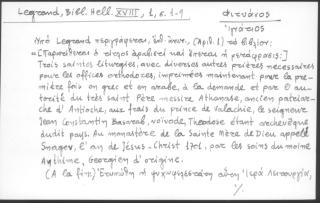 Legrand, Bibl. Hell. XVIII, 1, σ. 1-9
Φιτυάνος
Ἰγνάτιος
Ὑπὸ Legrand περιγράφεται, ἔνθ. ἀνωτ., (ἀριθ. 1) τὸ βιβλίον:
= [Παρατίθεται ὁ τίτλος ἀραβιστὶ καὶ ἕπεται ἡ μετάφρασις:]
Trois saintes liturgies, avec diverses autres prières nécessaires
pour les offices orthodoxes, imprimées maintenant pour la pre-
mière fois en grec et en arabe, à la demande et par l' au-
torité du très saint Père messire Athanase, ancien patriar-
che d' Antioche, aux frais du prince de Valachie, le seigneur
Jean Constantin Basarab, voïvode, Théodose étant archevêque
dudit pays. Au monastère de la Sainte Mère de Dieu appelé
Snagov, l' an de Jésus-Christ 1701, par les soins du moine
Anthime, Georgien d' origine.
(Α la fin:) Ἐτυπώθη ἡ ψυχωφελεστάτη αὕτη Ἱερὰ Λειτουργία,
%.